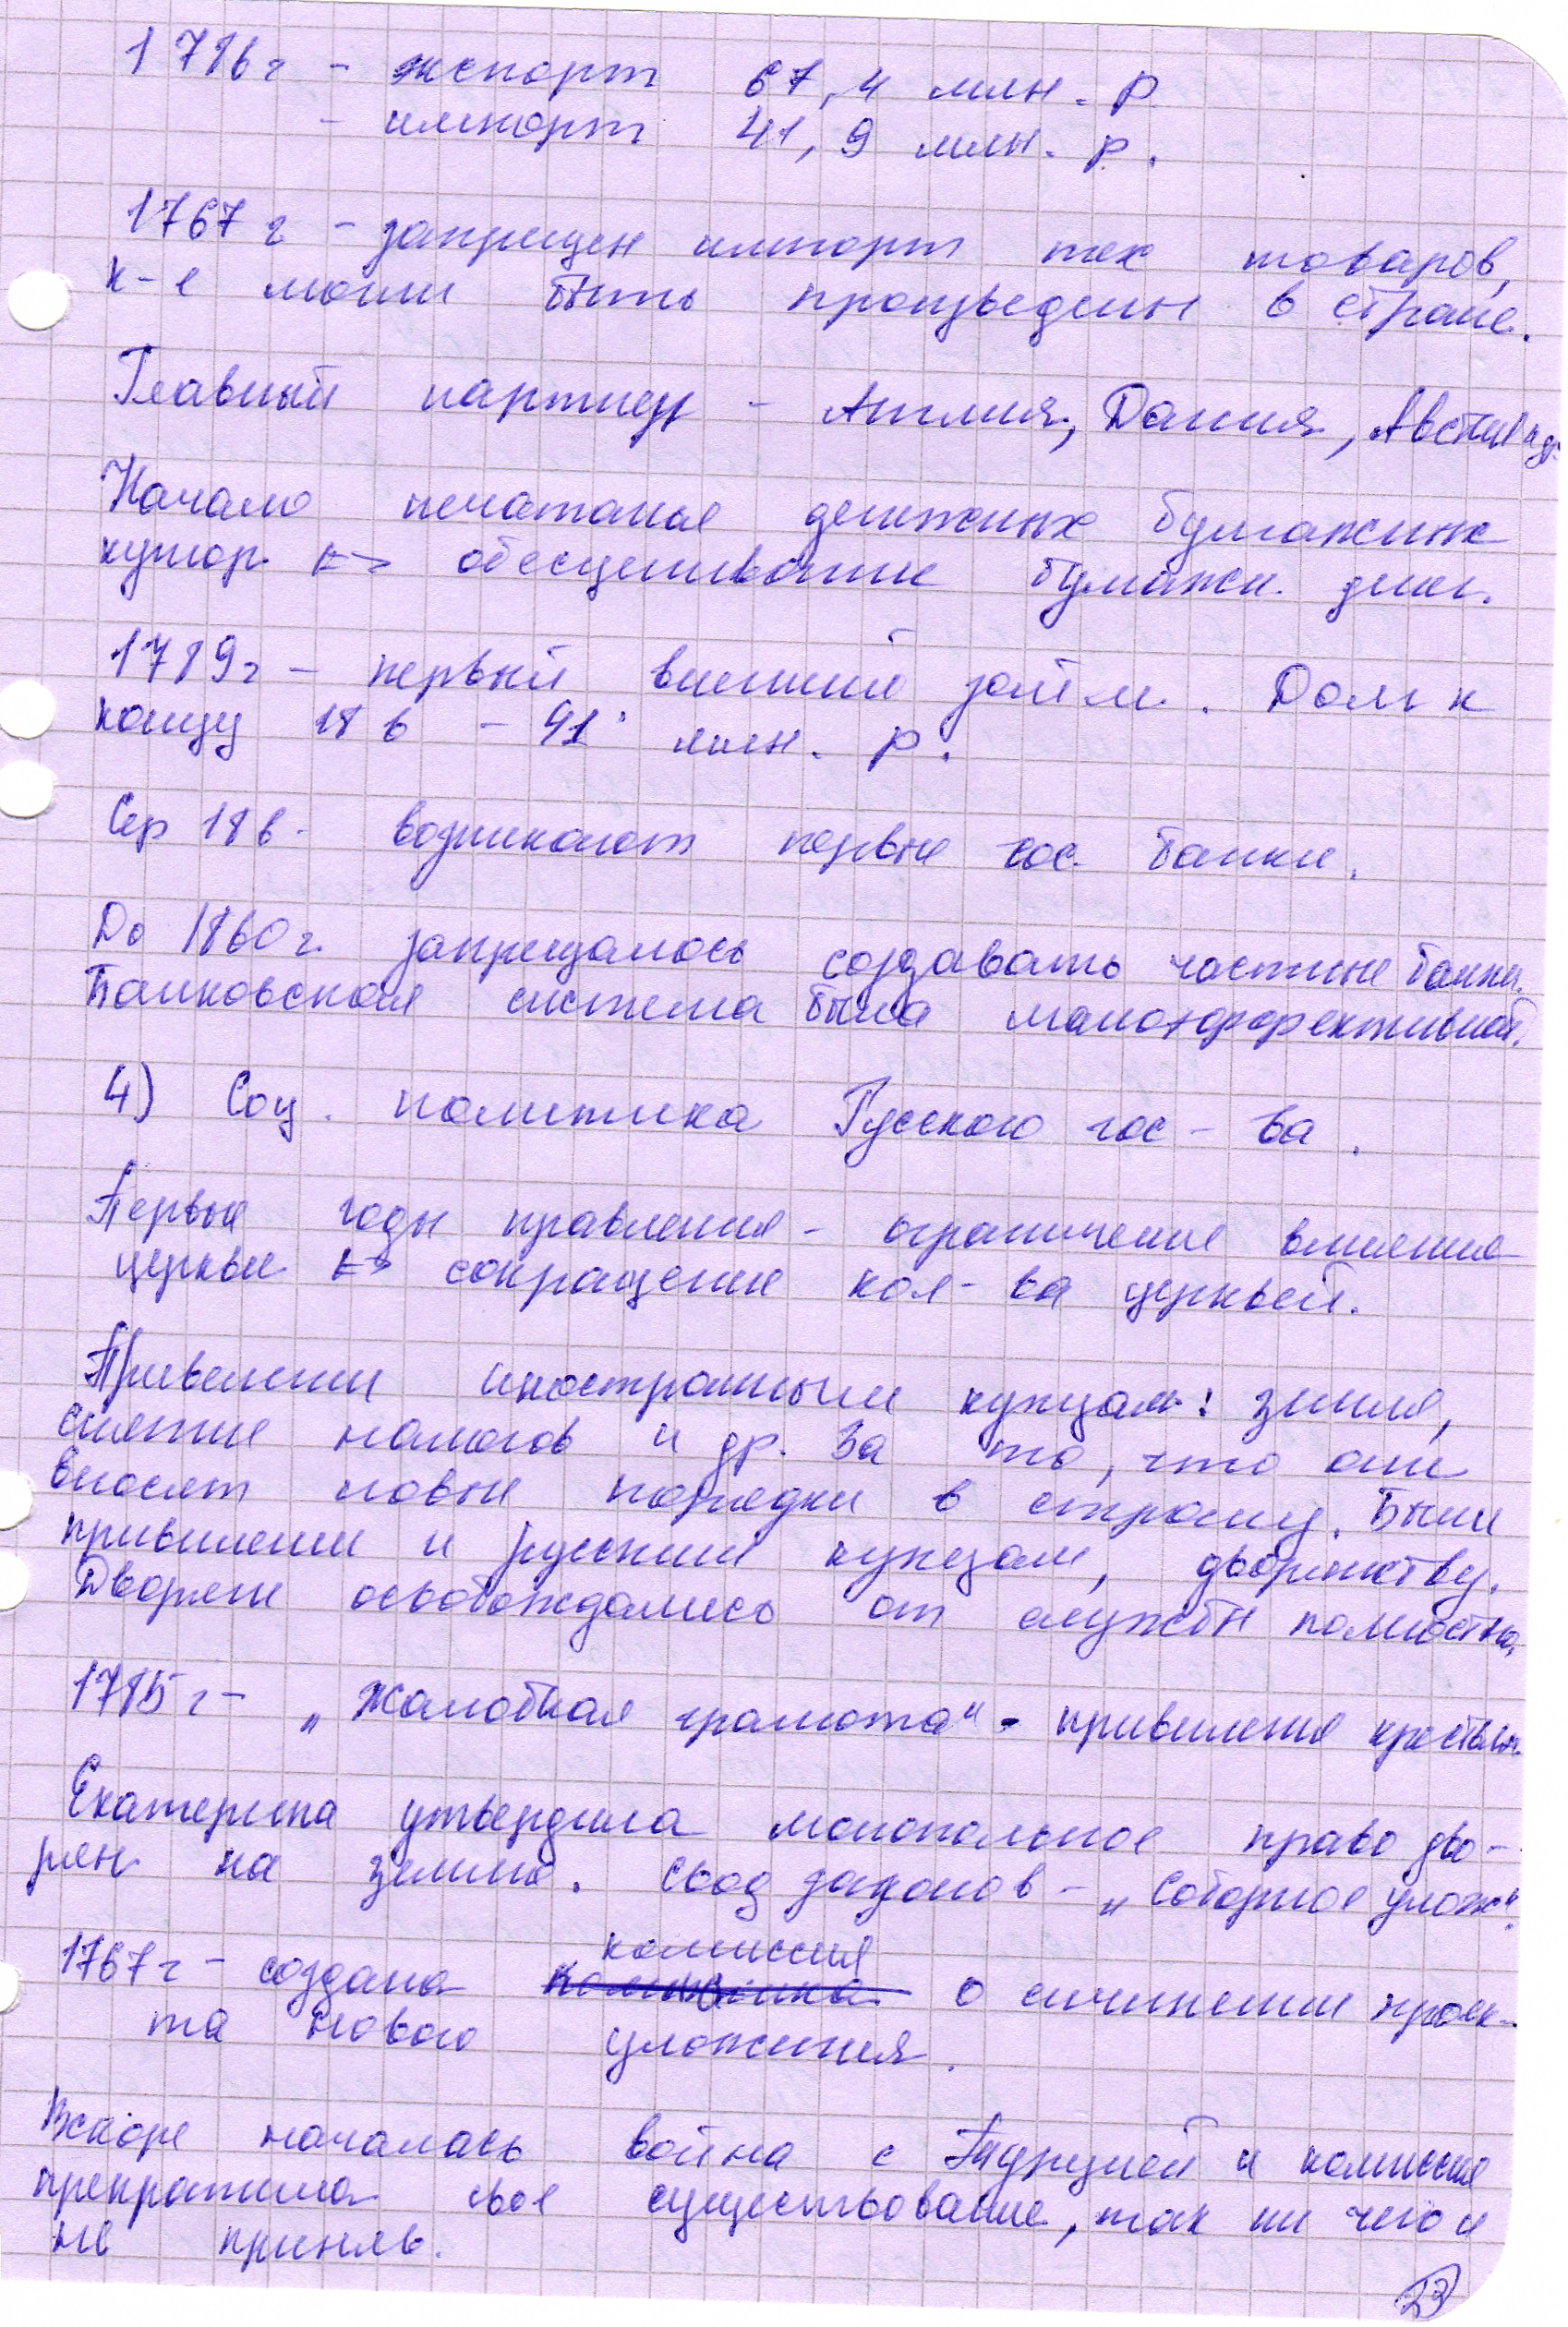 1786г - экспорт 67,4 млн. р
- импорт 41,9 млн. р.
1767г - запрещен импорт тех товаров,
к-е могли быть произведены в стране.
Главный партнер - Англия, Дания, Австрия
Начало печатанья денежных бумажных
купюр. => обесценивание бумажн. ден.
1789г - первый внешний займ. Долг к
концу 18 в - 41 млн. р.
Сер 18в - возникают первые гос. банки.
До 1860г. запрещалось создавать частные банки.
Банковская система была малоэффективной.
4) Соц. политика Русского гос-ва.
Первые годы правления - ограничение влияния
церкви => сокращение кол-ва церквей.
Привелегии иностранным купцам: земля,
снятие налогов и др. За то, что они
вносят новые порядки в страну. Были
привилегии и русским купцам, дворянству.
Дворяне освобождались от службы полностью.
1785г - „Жалобная грамота" - привилегия крестьян.
Екатерина утвердила монопольное право дво-
рян на землю. Свод законов - „Соборное улож"
1767г - создана комиссия о сочинении проек-
та нового уложения.
Вскоре началась война с Турцией и комиссия
прекратила свое существование, так ни чего и
не приняв.
23